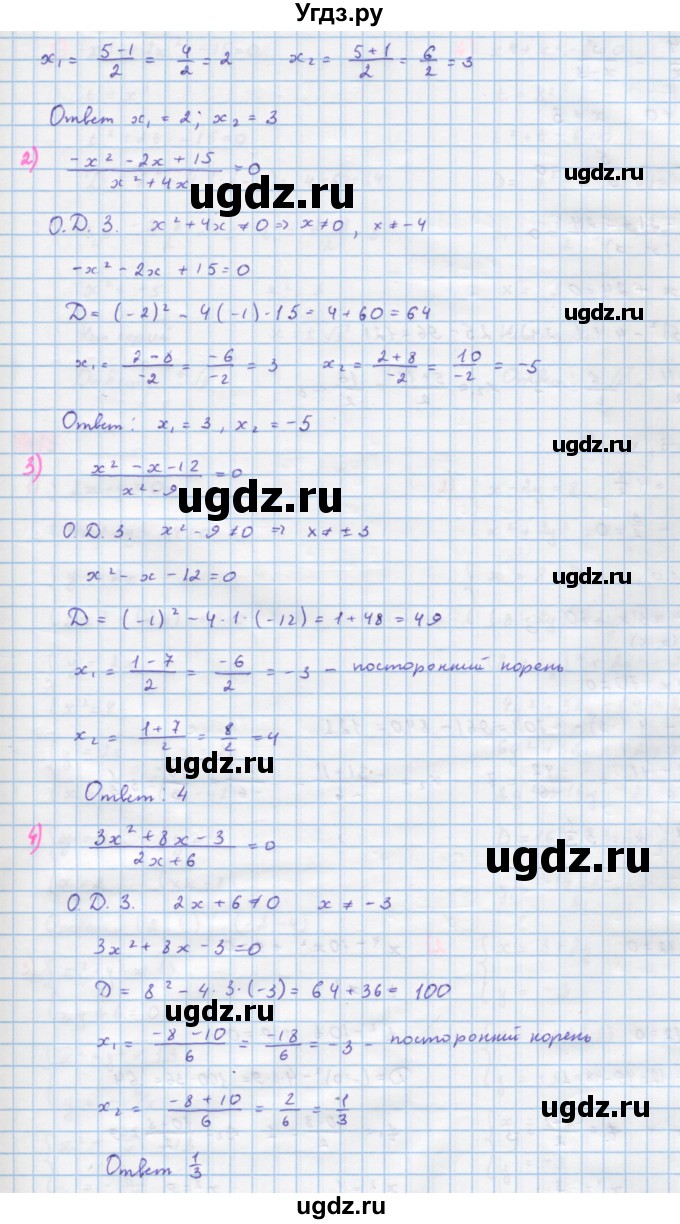 Угдз.ру
x₁ = (5-1)/2 = 4/2 = 2   x₂ = (5+1)/2 = 6/2 = 3
Ответ x₁ = 2; x₂ = 3
ugdz.ru
2) (-x² - 2x + 15)/(x² + 4x) = 0
ugdz.ru
О.Д.З. x² + 4x ≠ 0 => x ≠ 0, x ≠ -4
-x² - 2x + 15 = 0
D = (-2)² - 4(-1)·15 = 4 + 60 = 64
ugdz.ru
x₁ = (2-8)/-2 = -6/-2 = 3   x₂ = (2+8)/-2 = 10/-2 = -5
Ответ: x₁ = 3, x₂ = -5
ugdz.ru
3) (x² - x - 12)/(x² - 9) = 0
ugdz.ru
О.Д.З. x² - 9 ≠ 0 => x ≠ ± 3
x² - x - 12 = 0
ugdz.ru
D = (-1)² - 4·1·(-12) = 1 + 48 = 49
x₁ = (1-7)/2 = -6/2 = -3 - посторонний корень
x₂ = (1+7)/2 = 8/2 = 4
ugdz.ru
Ответ: 4
4) (3x² + 8x - 3)/(2x + 6) = 0
ugdz.ru
О.Д.З. 2x + 6 ≠ 0   x ≠ -3
3x² + 8x - 3 = 0
D = 8² - 4·3·(-3) = 64 + 36 = 100
ugdz.ru
x₁ = (-8-10)/6 = -18/6 = -3 - посторонний корень
x₂ = (-8+10)/6 = 2/6 = -1/3
ugdz.ru
Ответ 1/3
ugdz.ru